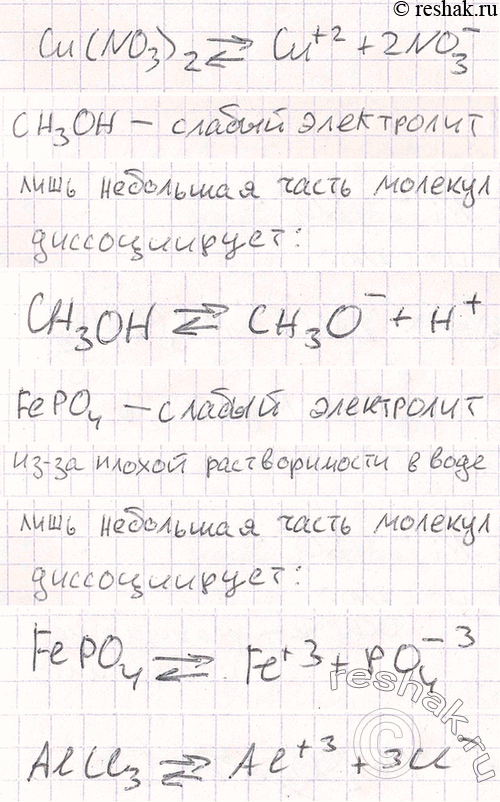 © reshak.ru
Cu(NO₃)₂ ⇄ Cu⁺² + 2NO₃⁻
CH₃OH – слабый электролит
лишь небольшая часть молекул
диссоциирует:
CH₃OH ⇄ CH₃O⁻ + H⁺
FePO₄ – слабый электролит
из-за плохой растворимости в воде
лишь небольшая часть молекул
диссоциирует:
FePO₄ ⇄ Fe⁺³ + PO₄⁻³
reshak.ru
©
AlCl₃ ⇄ Al⁺³ + 3Cl⁻